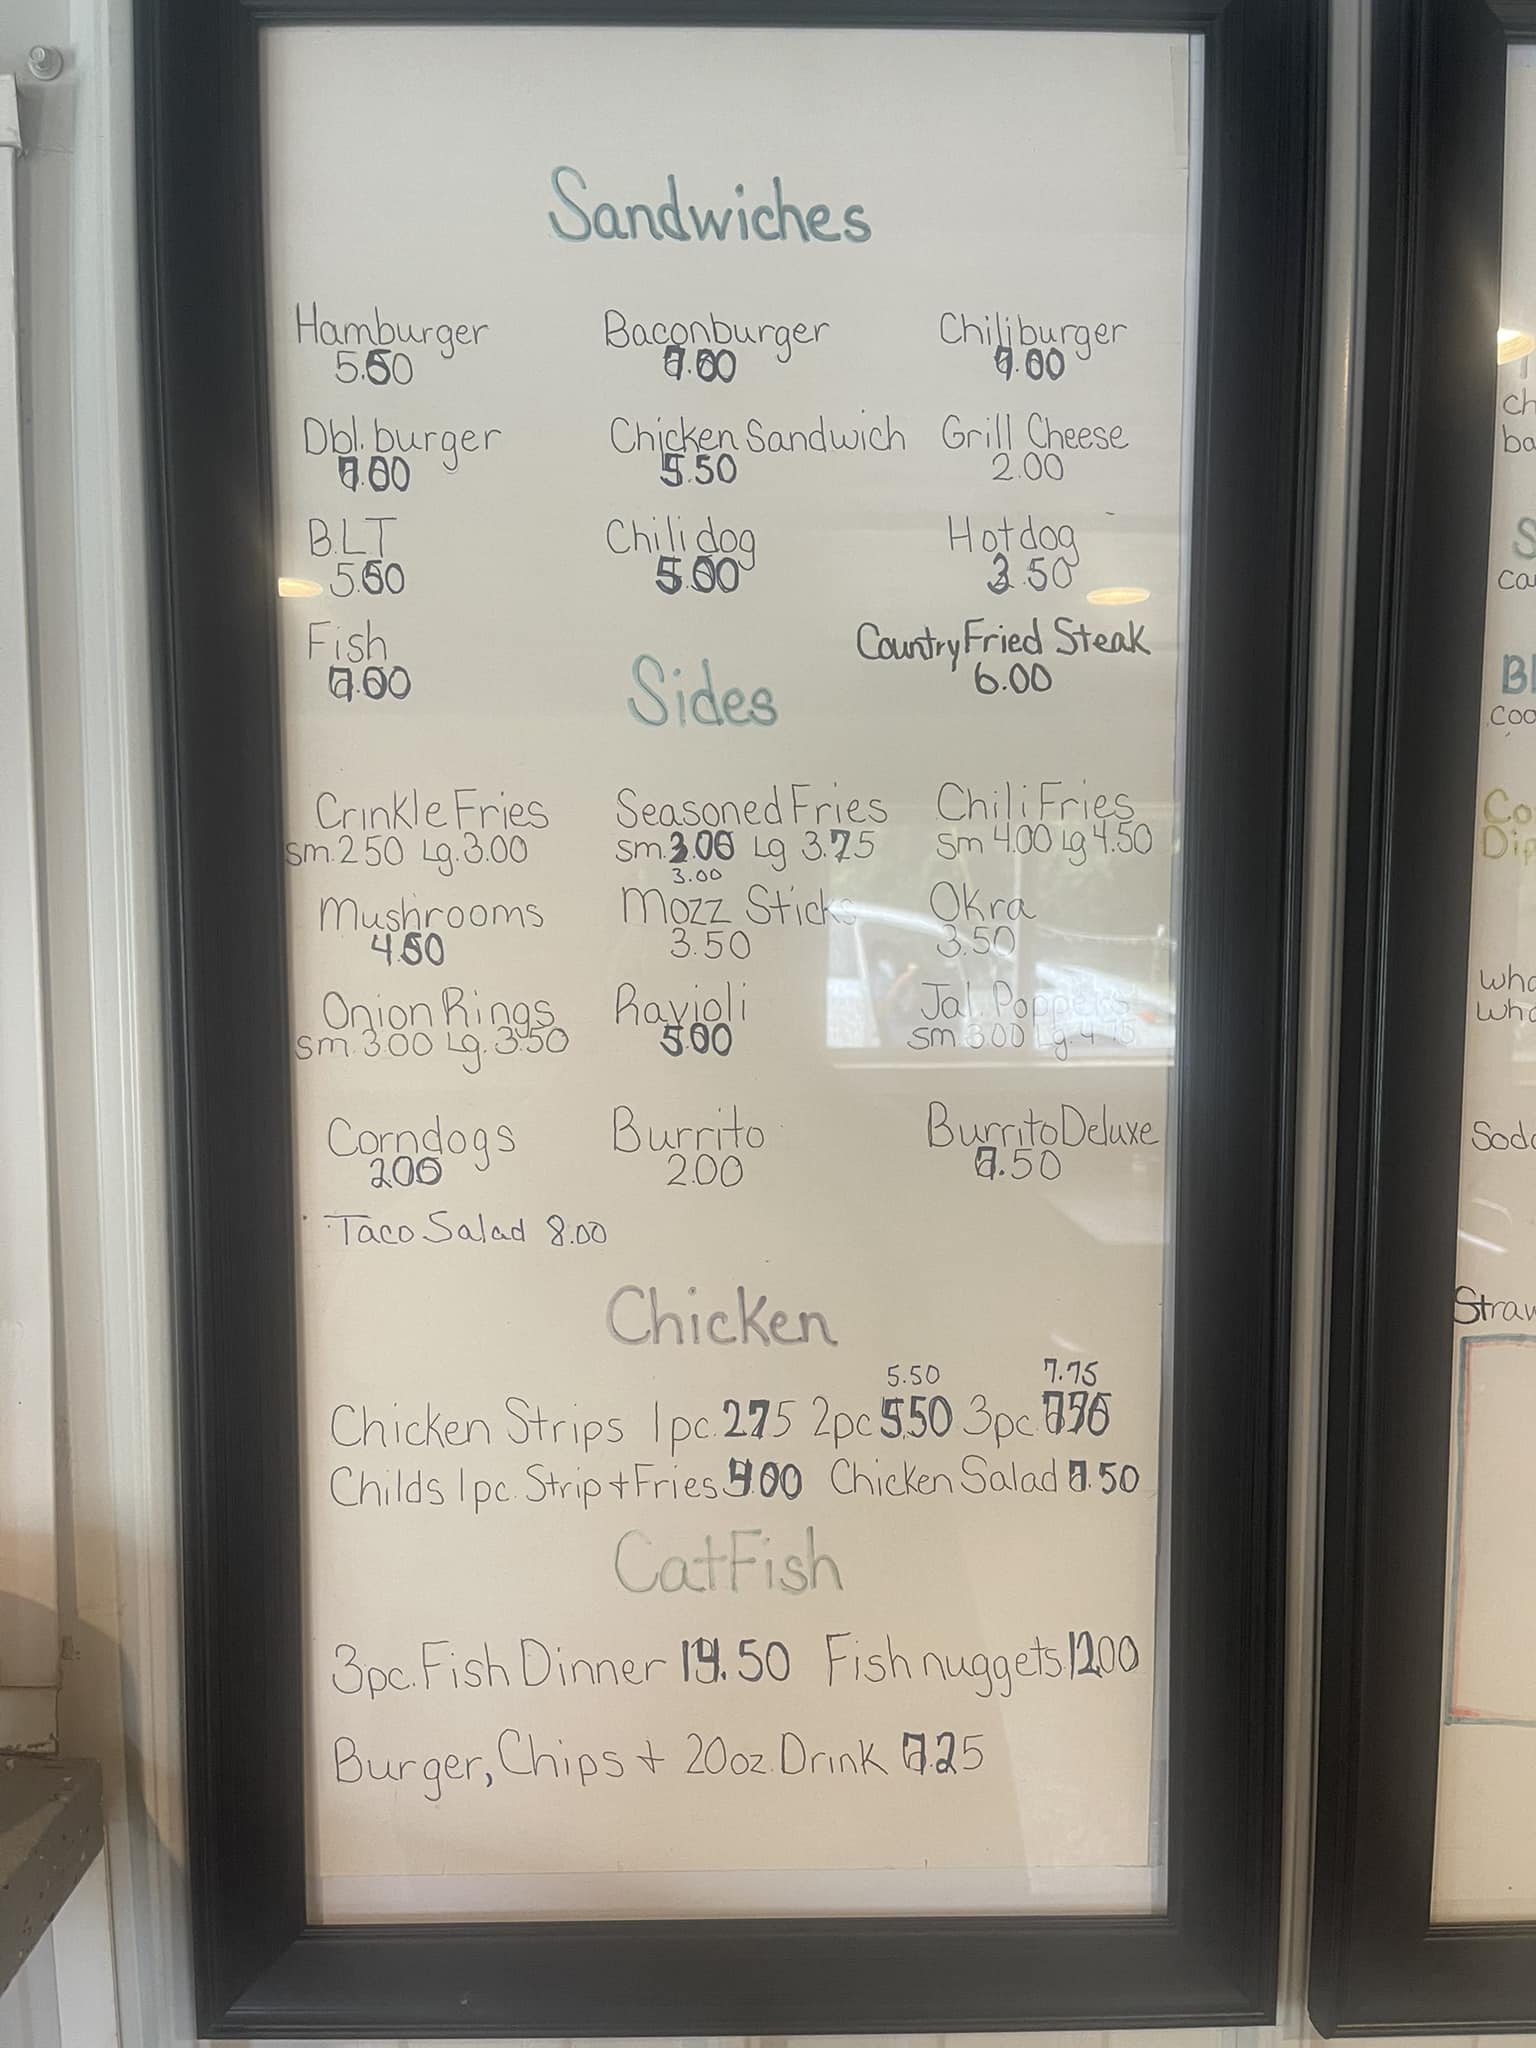 Sandwiches
Hamburger Baconburger Chiliburger
5.50
Dbl. burger Chicken Sandwich Grill Cheese
5.50 2.00
B.L.T Chili dog Hotdog
5.50 5.00 3.50
Fish Country Fried Steak
6.00
Sides
Crinkle Fries Seasoned Fries Chili Fries
sm. 2.50 Lg. 3.00 sm. 3.00 Lg 3.75 sm 4.00 Lg 4.50
3.00
Mushrooms Mozz Sticks Okra
4.50 3.50 3.50
Onion Rings Ravioli Jal. Poppers
sm. 3.00 Lg. 3.50 5.00 sm 3.00 Lg. 4.75
Corndogs Burrito Burrito Deluxe
2.00 2.00 .50
Taco Salad 8.00
Chicken
5.50 7.75
Chicken Strips 1pc. 2.75 2pc 5.50 3pc.
Childs 1pc. Strip + Fries Chicken Salad .50
CatFish
3pc. Fish Dinner .50 Fish nuggets 12.00
Burger, Chips + 20oz. Drink